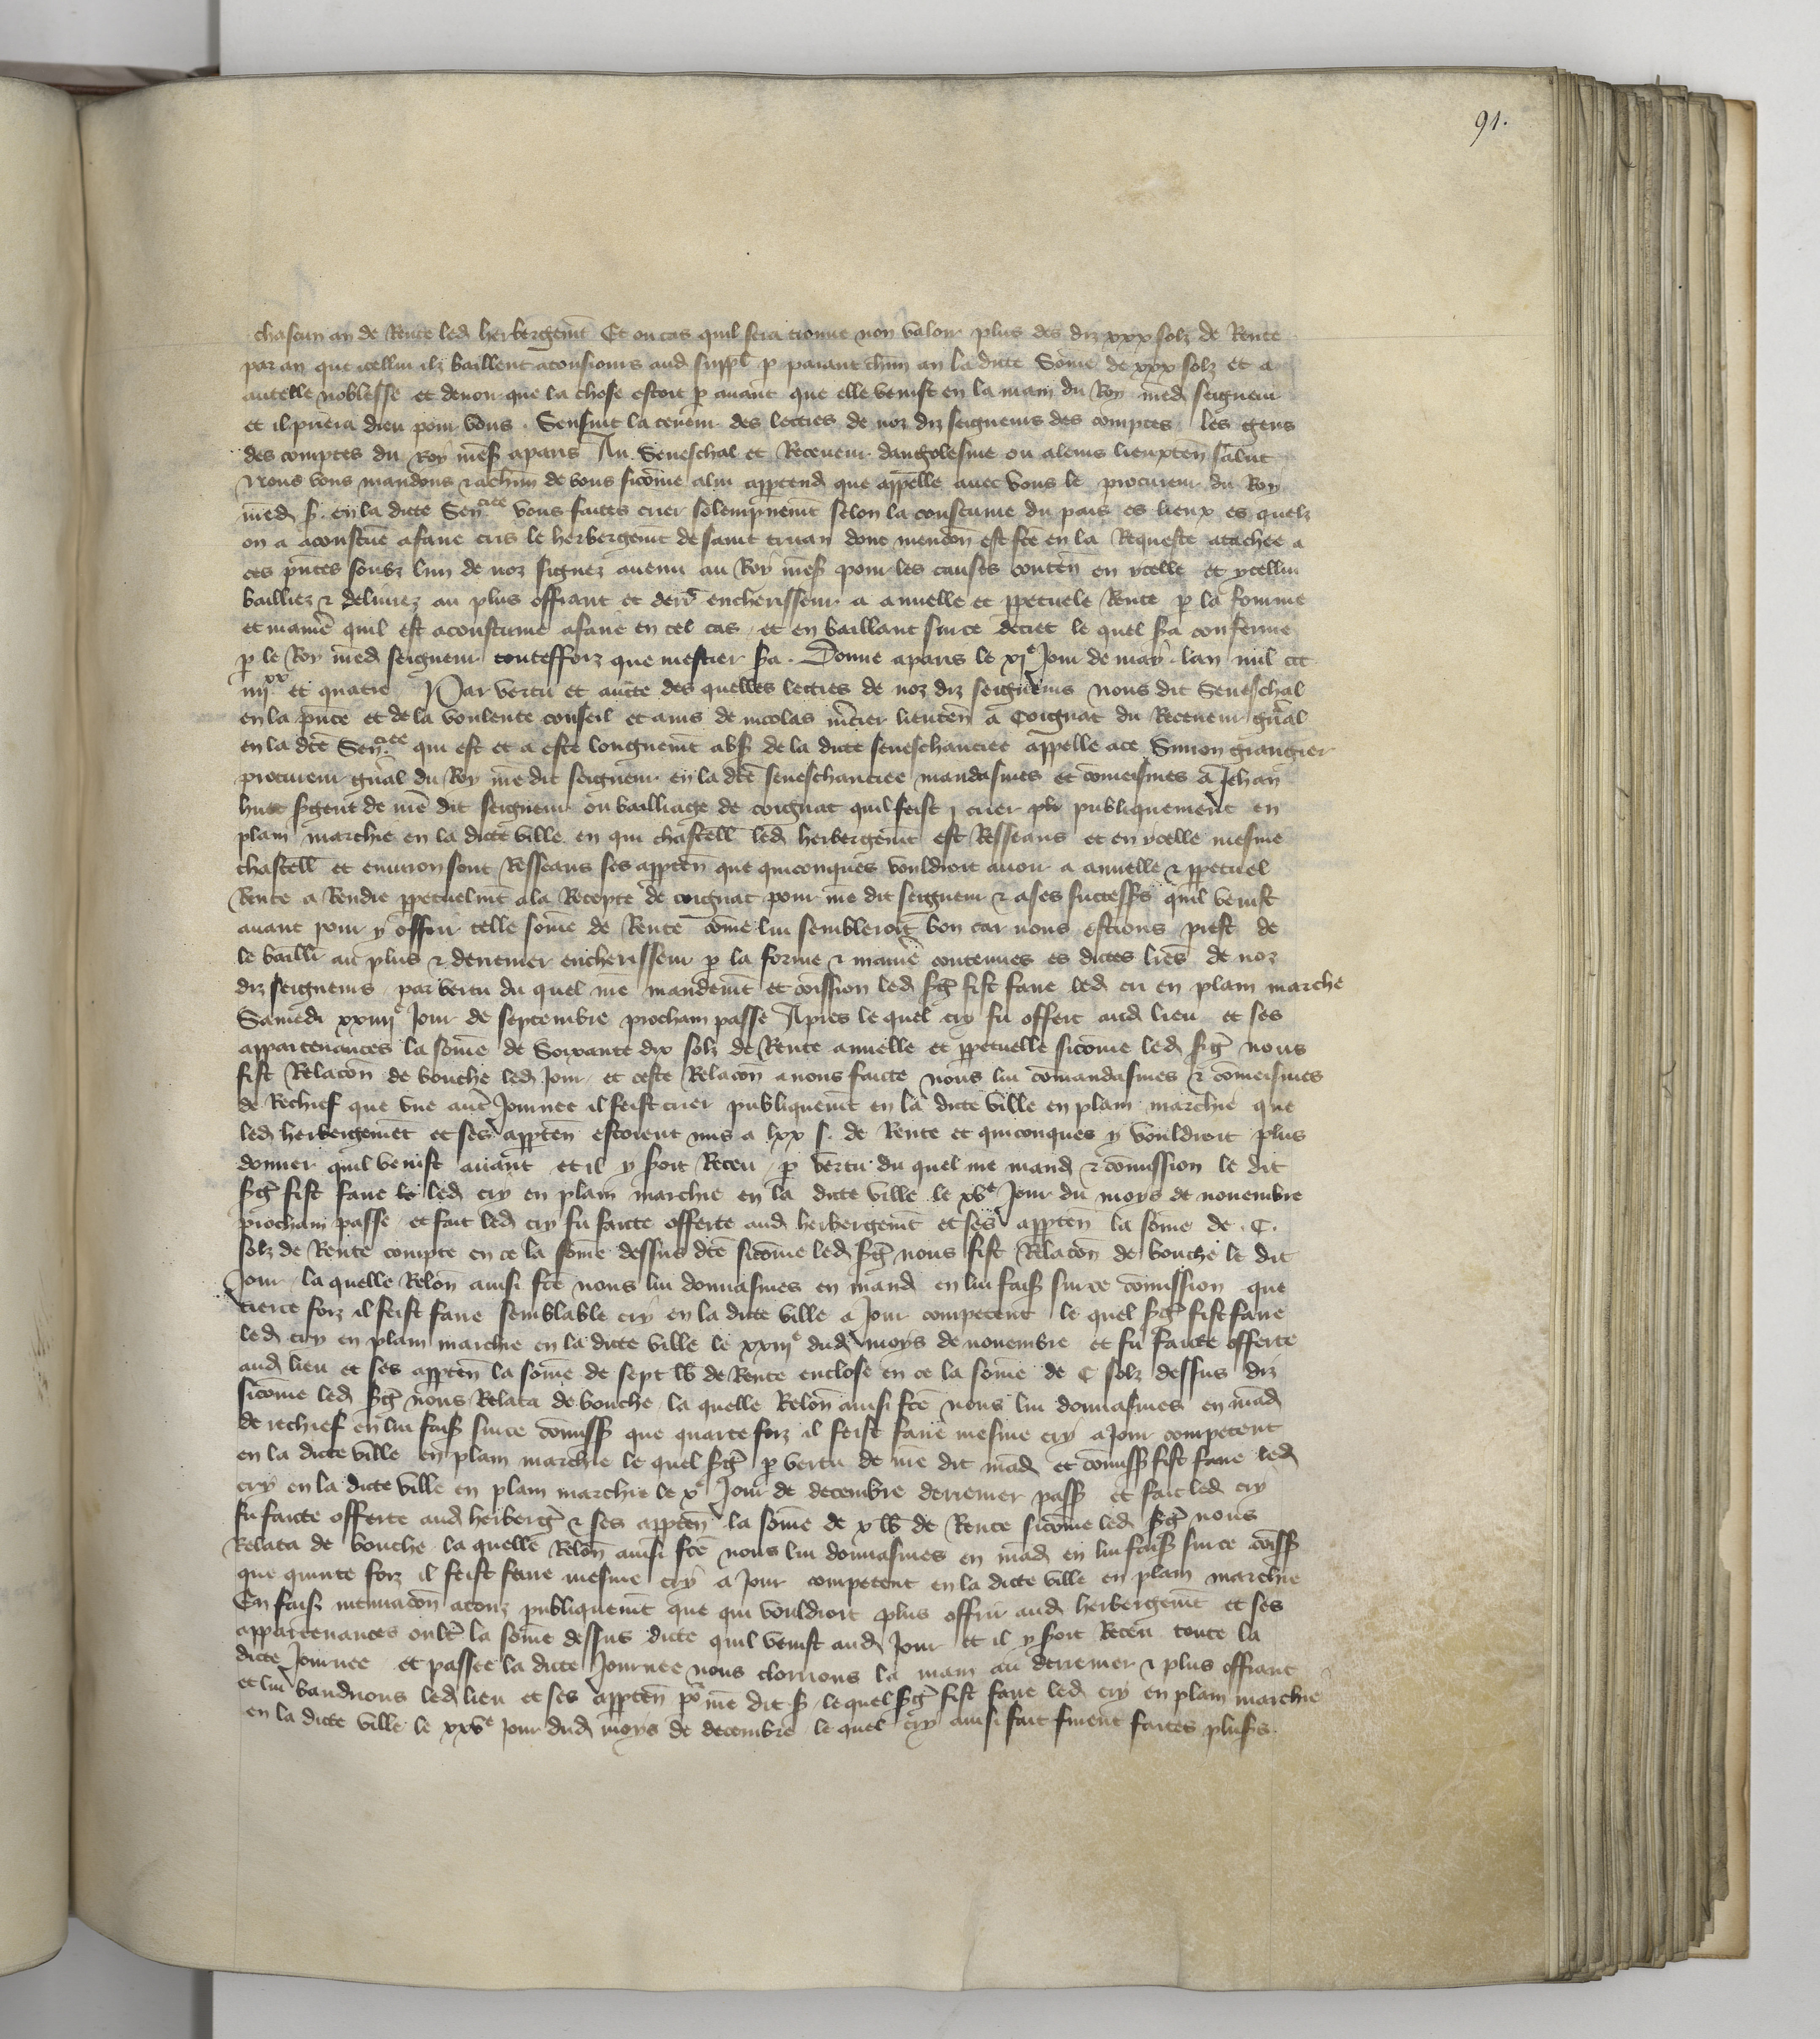 91.
chascun an de Rente led herbergemt Et ou cas quil sera trouve non valoir plus des diz xxx solz de Rente
par an que icellui ilz baillent a cens aud suppl p paiant chun an la dicte Some de xxx solz et a
autelle noblesse et devoir que la chose estoit p avant que elle venist en la main du Roy med seigneur
et il priera dieu pour vous. Sensuit la teneur des lectres de noz diz seigneurs des comptes les gens
des comptes du Roy mess a paris Au Seneschal et Receveur dangolesme ou a leurs lieuxten salut
Nous vous mandons & a chun de vous sicome a lui apptend que appelle avec vous le procureur du Roy
med s. en la dicte Sencee vous faites crier solempnemt selon la coustume du pais es lieux es quelz
on a acoustume a faire cris le herbergemt de saint truian dont mencon est fce en la Requeste atachee a
ces pntes soubz lun de noz signez avenu au Roy mess pour les causes conten en ycelle et ycellui
bailliez & delivrez au plus offrant et derr encherisseur a annuelle et ppetuele Rente p la forme
et manie quil est acoustume a faire en tel cas et en baillant sur ce decret le quel sa conferme
p le Roy med seigneur toutesfoiz que mestier sa. Donne a paris le xje Jour de may lan mil ccc
iiijxx et quatre Par vertu et aucte des quelles lectres de noz diz seigneurs nous dit Seneschal
en la pnce et de la voulente conseil et avis de nicolas mcier lieuten a Coignac du Receveur gnal
en la dce Sencee qui est et a este longuemt abs de la dicte seneschaucee appelle a ce Simon grangier
procureur gnal du Roy me dit seigneur en la dce seneschaucee mandasmes et comeismes a Jehan
huet sgent de me dit seigneur ou bailliage de coignac quil feist j crier publiquement en
plain marchie en la dicte ville en qui chastell led herbergemt est Resseans et en ycelle mesme
chastell et environ sont Resseans ses appten que quiconques vouldroit avoir a annuelle & ppetuel
Rente a Rendre ppetuelmt a la Recepte de coignac pour me dit seigneur & a ses successs quil venist
avant pour y offrir telle some de Rente come lui sembleroit bon car nous estions prest de
le baillr au plus & derremer encherisseur p la forme & manie contenues es dictes lres de noz
diz seigneurs par vertu du quel me mandemt et comission led sgt fist faire led cri en plain marche
Samedi xxiiije Jour de septembre prochain passe Apres le quel cry fu offert aud lieu et ses
appartenances la some de Soixante dix solz de Rente annuelle et ppetuelle sicome led sgt nous
fist Relacon de bouche led Jour et ceste Relacon a nous faicte nous lui comandasmes & comeismes
de Rechief que une autre Journee il feist crier publiquemt en la dicte ville en plain marchie que
led herbergemt et ses appten estoient mis a lxx s. de Rente et quiconques y vouldroit plus
donner quil venist avant et il y soit Receu p vertu du quel me mand & comission le dit
sgt fist faire led cry en plain marchie en la dicte ville le xve Jour du moys de novembre
prochain passe et fait led cry fu faicte offerte aud herbergemt et ses appten la some de .C.
solz de Rente compte en ce la some dessus dce sicome led sgt nous fist Relacon de bouche le dit
Jour la quelle Relon ainsi fce nous lui donnasmes en mand en lui fais sur ce comission que
tierce foiz il feist faire semblable cry en la dicte ville a Jour competent le quel sgt fist faire
led cry en plain marchie en la dicte ville le xxiije dud moys de novembre et fu faicte offerte
aud lieu et ses appten la some de sept lb de Rente enclose en ce la some de C solz dessus diz
sicome led sgt nous Relata de bouche la quelle Relon ainsi fce nous lui donnasmes en mad
de rechief en lui fais sur ce comiss que quarte foiz il feist faire mesme cry a Jour competent
en la dicte ville en plain marchie le quel sgt p vertu de me dit mad et comiss fist faire led
cry en la dicte ville en plain marchie le xe Jour de decembre derremer pass et fait led cry
fu faicte offerte aud herberg & ses appten la some de x lb de Rente sicome led sgt nous
Relata de bouche la quelle Relon ainsi fce nous lui donnasmes en mad en lui fais sur ce comiss
que quinte foiz il feist faire mesme cry a Jour competent en la dicte ville en plain marchie
En fais intimacon a touz publiquemt que qui vouldroit plus offrir aud herbergemt et ses
appartenances oultre la some dessus dicte quil venist aud Jour et il y soit Receu toute la
dicte Journee et passee la dicte Journee nous clorrions la main au derremer & plus offrant
et lui vandrions led lieu et ses appten po me dit s le quel sgt fist faire led cry en plain marchie
en la dicte ville le xxve Jour dud moys de decembre le quel cry ainsi fait furent faites pluss